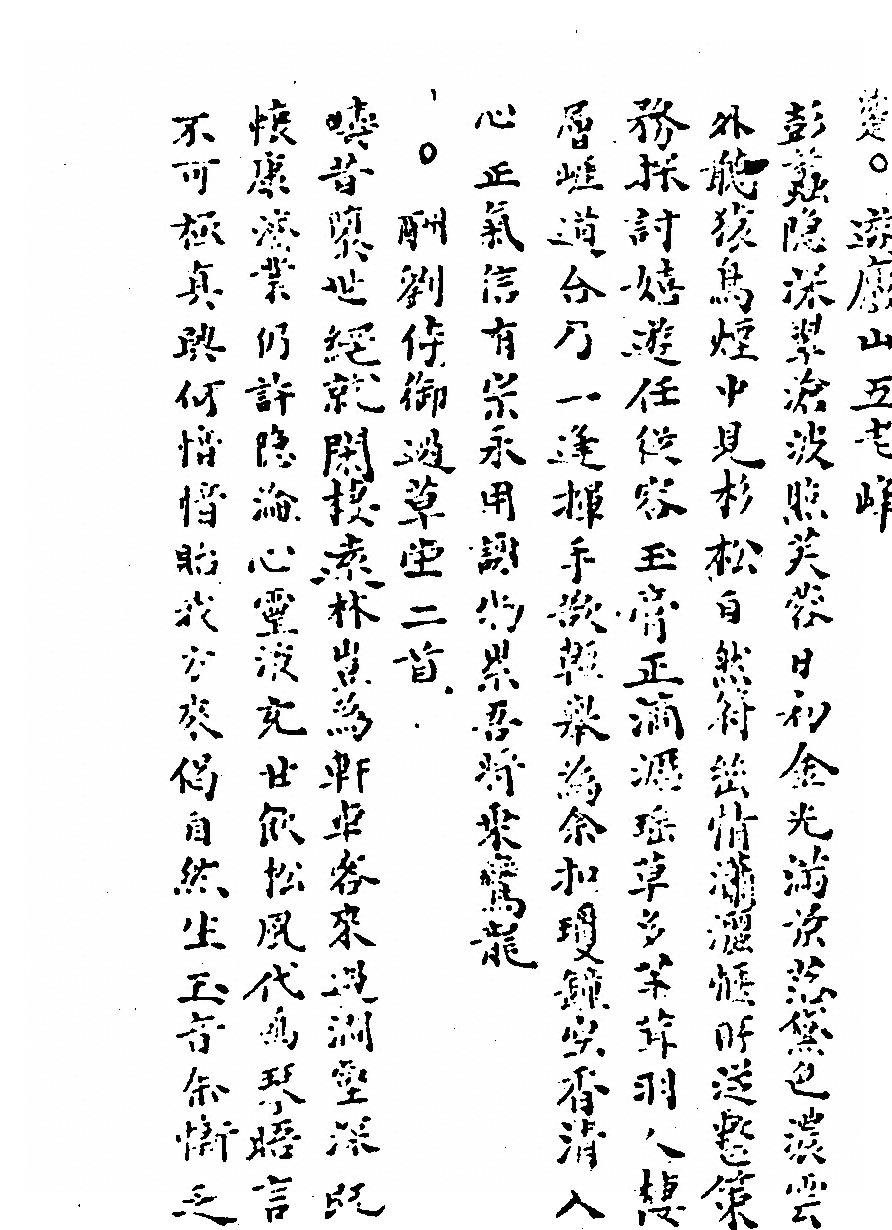 楚。遊廬山五老峰
彭蠡隐深翠滄波照芙蓉日初金光滿景落黛色濃雲
外聽猿鳥煙中見杉松自然符幽情瀟灑愜所送整策
務探討嬉遊任從容玉膏正滴瀝瑤草多芊茸羽人棲
層崖道合乃一逢揮手欲輕舉為余扣瓊鐘空香清人
心正氣信有宗永用謝物累吾將乘鸞龍
。酬劉侍御過草堂二首
疇昔襄世絕就閑棲素林豈為軒車客來過澗壑深既
懷康濟業仍許隐淪心靈液充甘飲松風代為琴晤言
不可極真興何愔愔貽我方來偈自然生玉音余慚乏